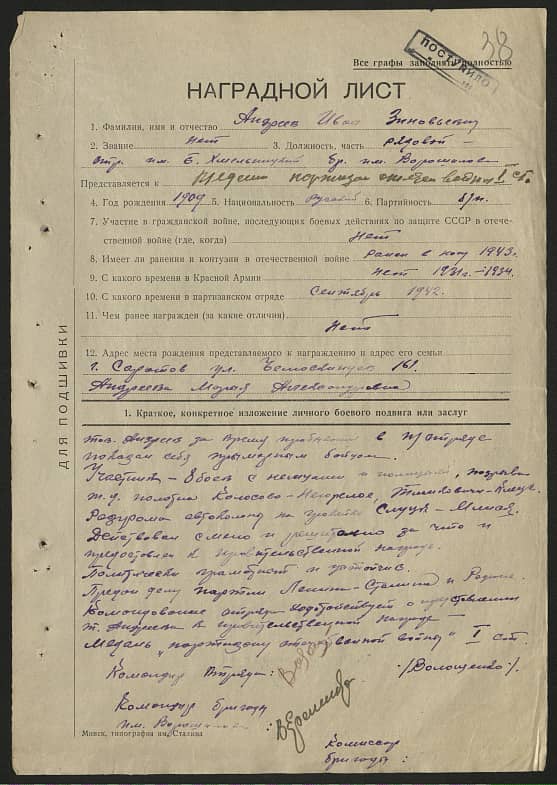 38
ПОСТУПИЛО
Все графы заполнять полностью
НАГРАДНОЙ ЛИСТ
1. Фамилия, имя и отчество Андреев Иван Зиновьевич
2. Звание нет 3. Должность, часть рядовой –
отр. им. Б. Хмельницкий бр. им. Ворошилова
Представляется к медали партизан отечеств. войны I ст.
4. Год рождения 1909 5. Национальность русский 6. Партийность б/п.
7. Участие в гражданской войне, последующих боевых действиях по защите СССР в отече-
ственной войне (где, когда) Нет
8. Имеет ли ранения и контузии в отечественной войне ранен в 1943г.
9. С какого времени в Красной Армии нет 1931г. – 1934.
10. С какого времени в партизанском отряде Сентябрь 1942.
11. Чем ранее награжден (за какие отличия)
Нет
12. Адрес места рождения представляемого к награждению и адрес его семьи
г. Саратов ул. 161.
Андреева Мария Александровна
ДЛЯ ПОДШИВКИ
1. Краткое, конкретное изложение личного боевого подвига или заслуг
тов. Андреев за время пребывания в п/отряде
показал себя примерным бойцом.
Участник – 8 боев с немцами и полицией, подрыва
ж.д. полотна Колосово – Негорелое, Тимковичи – Клецк.
Разгрома автоколонн на Слуцк –
Действовал смело и решительно за что и
представлен к правительственной награде.
Политически грамотен и устойчив.
Предан делу партии Ленина – Сталина и Родине.
Командование отряда ходатайствует о представлении
т. Андреева к правительственной награде
Медаль "партизану отечественной войны" I ст.
Командир Отряда: /Волощенко/.
Командир бригады
им. Ворошилова :
Минск, типография им. Сталина
Комиссар
бригады :